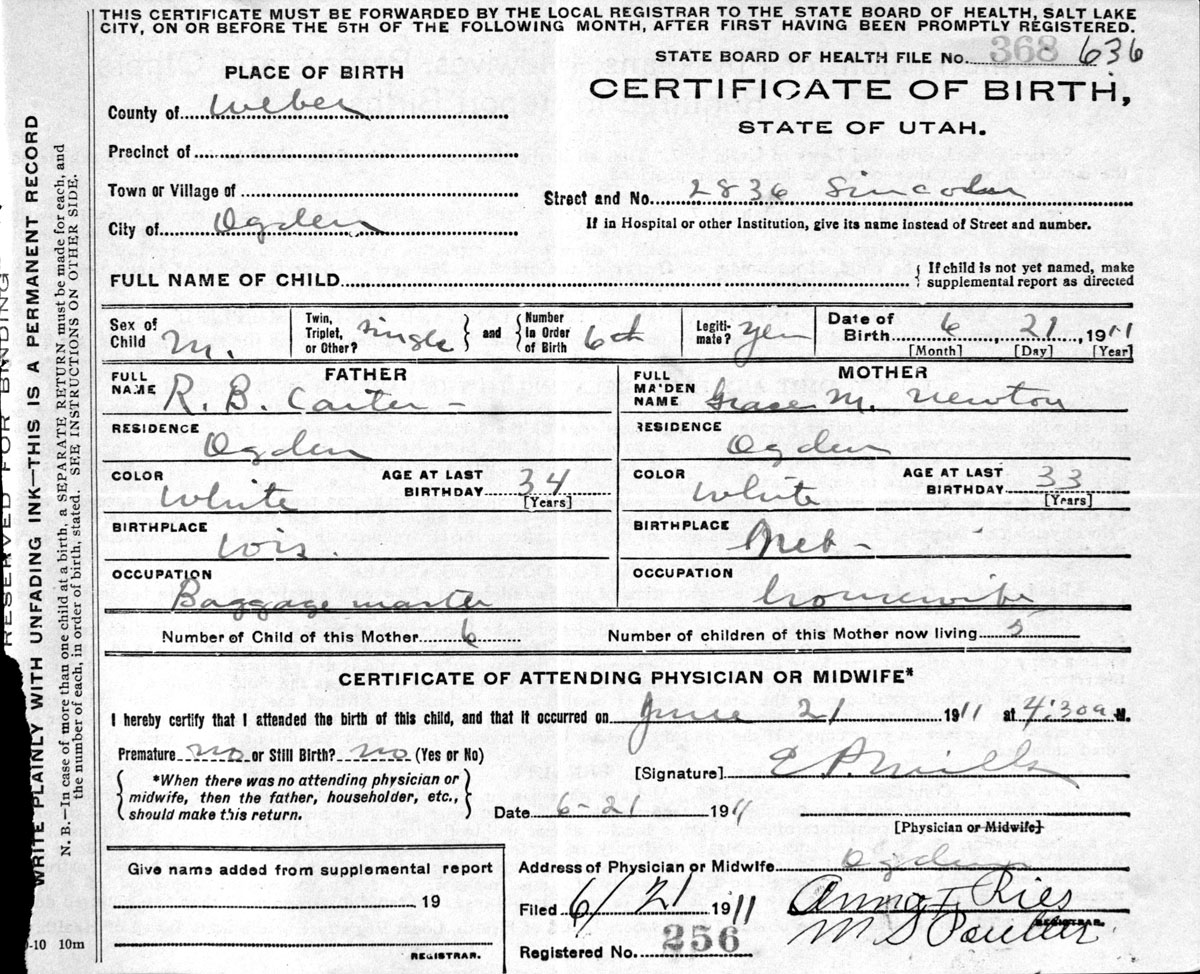 THIS CERTIFICATE MUST BE FORWARDED BY THE LOCAL REGISTRAR TO THE STATE BOARD OF HEALTH, SALT LAKE
CITY, ON OR BEFORE THE 5TH OF THE FOLLOWING MONTH, AFTER FIRST HAVING BEEN PROMPTLY REGISTERED.
STATE BOARD OF HEALTH FILE No. 368 636
PLACE OF BIRTH
CERTIFICATE OF BIRTH,
STATE OF UTAH.
County of Weber
Precinct of
Town or Village of
Street and No. 2836 Lincoln
City of Ogden
If in Hospital or other Institution, give its name instead of Street and number.
FULL NAME OF CHILD
{ If child is not yet named, make
supplemental report as directed
Sex of Child M.
Twin, Triplet, or Other? single } and { Number in Order of Birth 6th
Legiti-mate? yes
Date of Birth 6, 21, 1911
[Month] [Day] [Year]
FATHER
FULL NAME R. B. Carter -
MOTHER
FULL MAIDEN NAME Grace M. Newton
RESIDENCE Ogden
RESIDENCE Ogden
COLOR White AGE AT LAST BIRTHDAY 34 [Years]
COLOR White AGE AT LAST BIRTHDAY 33 [Years]
BIRTHPLACE Wis.
BIRTHPLACE Neb -
OCCUPATION Baggage master
OCCUPATION housewife
Number of Child of this Mother 6
Number of children of this Mother now living 5
CERTIFICATE OF ATTENDING PHYSICIAN OR MIDWIFE*
I hereby certify that I attended the birth of this child, and that it occurred on June 21 1911 at 4:30a M.
Premature no or Still Birth? no (Yes or No)
*When there was no attending physician or
midwife, then the father, householder, etc.,
should make this return.
[Signature] E P. Mills
Date 6-21 1911
[Physician or Midwife]
Give name added from supplemental report
19
REGISTRAR.
Address of Physician or Midwife Ogden
Filed 6/21 1911 Anna F. Ries
REGISTRAR.
Registered No. 256
RESERVED FOR BINDING
WRITE PLAINLY WITH UNFADING INK—THIS IS A PERMANENT RECORD
N. B.—In case of more than one child at a birth, a SEPARATE RETURN must be made for each, and
the number of each, in order of birth, stated. SEE INSTRUCTIONS ON OTHER SIDE.
-10 10m